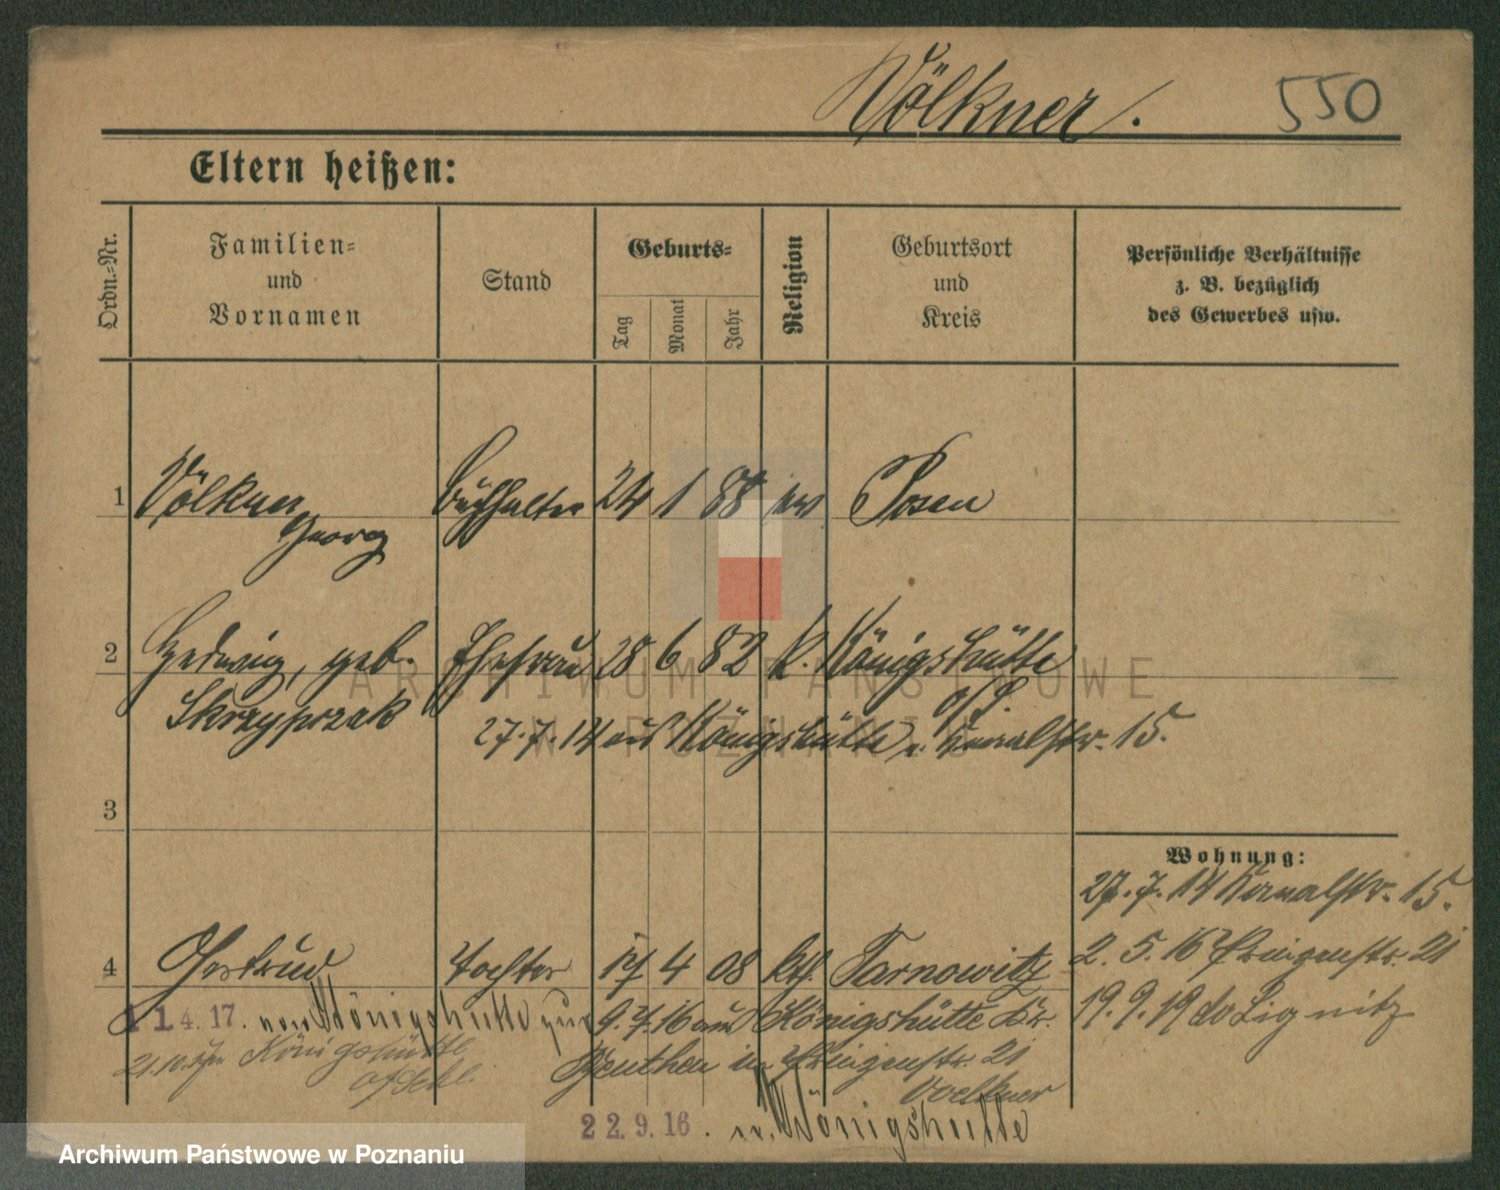 Völkner.
550
Eltern heißen:
Ordn.=Nr.
Familien=
und
Vornamen
Stand
Geburts=
Tag
Monat
Jahr
Religion
Geburtsort
und
Kreis
Persönliche Verhältnisse
z. B. bezüglich
des Gewerbes usw.
1 Völkner Buchhalter 24 1 88 ev Posen
Georg
2 Hedwig, geb. Ehefrau 28 6 82 k. Königshütte
Skrzypczak
o/S.
27.7.14 aus Königshütte n. Kanalstr. 15.
3
Wohnung:
27.7.14 Kanalstr. 15.
4 Gertrud Tochter 17 4 08 kth. Tarnowitz
2.5.16 Prinzenstr. 21
19.9.19 do Liegnitz
11.4.17. von Königshütte zur
9.7.16 aus Königshütte Kr.
Königshütte
o/Schl.
Beuthen in Prinzenstr. 21
Voelkner
22.9.16. n. Königshütte
ARCHIWUM PAŃSTWOWE
W POZNANIU
Archiwum Państwowe w Poznaniu